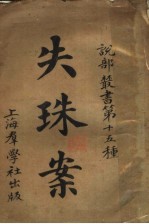 說部叢書第十五種
失珠案
上海羣學社出版